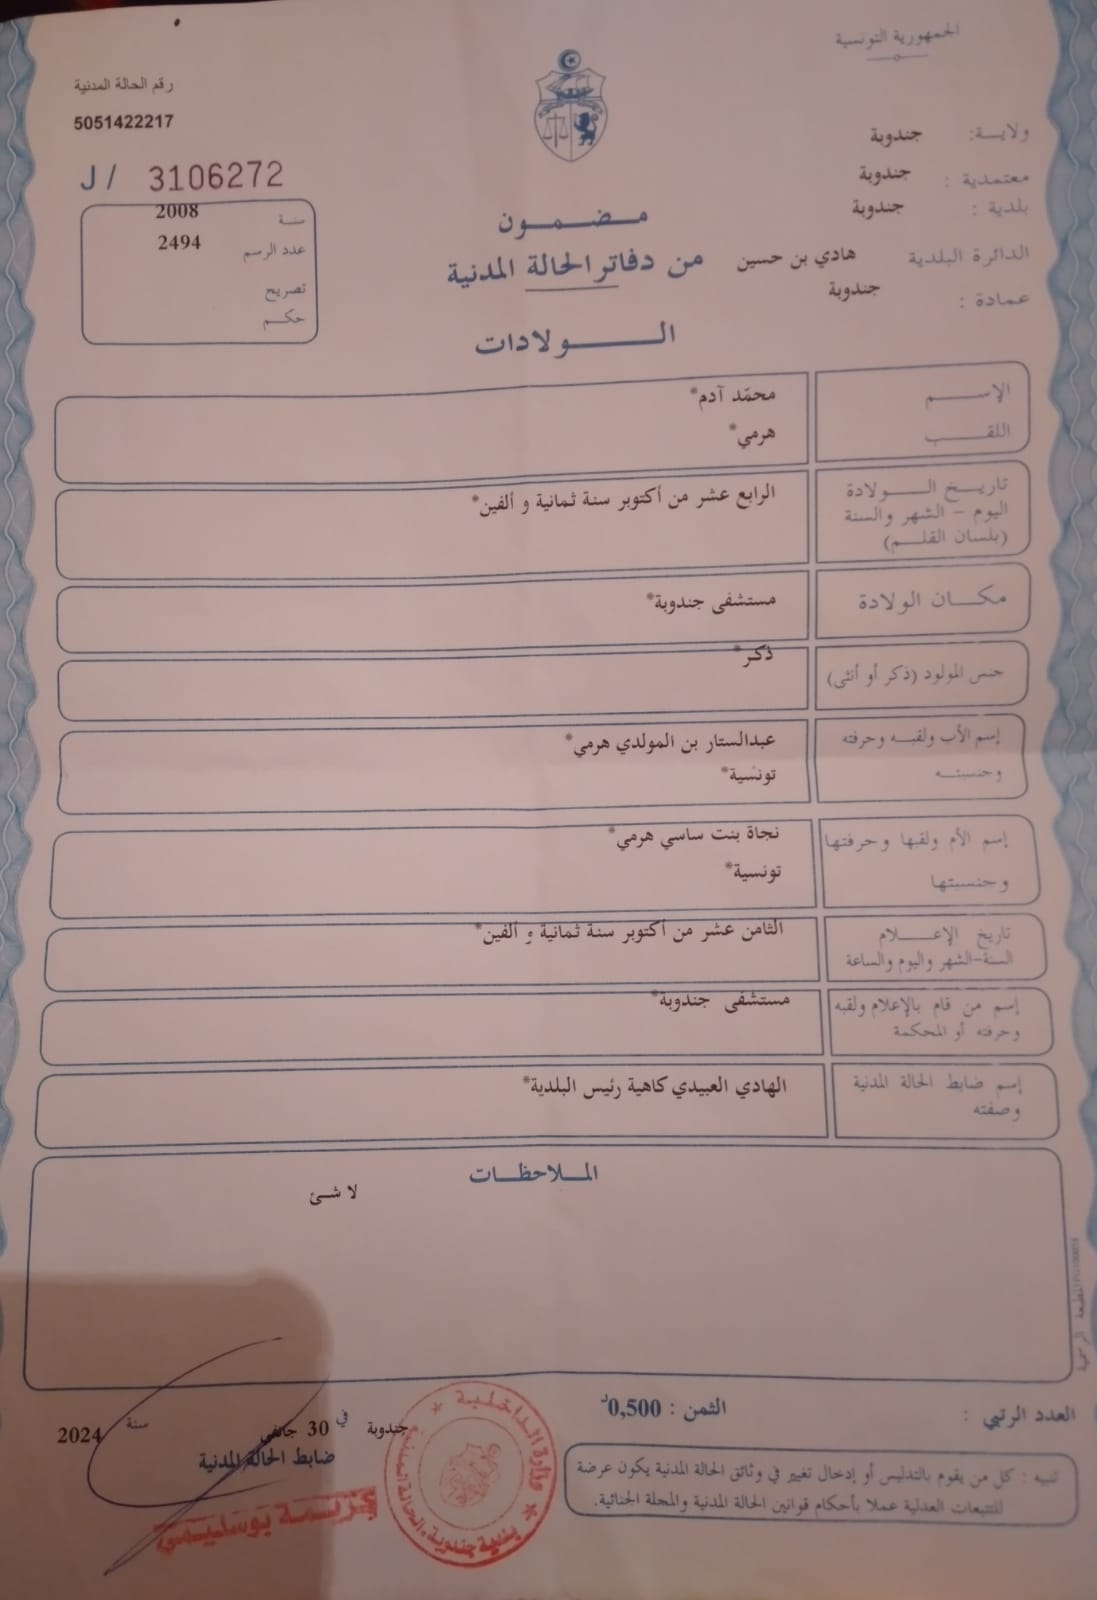 الجمهورية التونسية
رقم الحالة المدنية
5051422217
J / 3106272
ولايـة: جندوبة
معتمدية : جندوبة
بلدية : جندوبة
الدائرة البلدية هادي بن حسين
عمادة : جندوبة
سنة 2008
عدد الرسم 2494
تصريح
حكم
مضمون
من دفاتر الحالة المدنية
الولادات
الإسم محمّد آدم*
اللقب هرمي*
تاريخ الولادة
اليوم - الشهر والسنة
(بلسان القلم)
الرابع عشر من أكتوبر سنة ثمانية و ألفين*
مكان الولادة مستشفى جندوبة*
جنس المولود (ذكر أو أنثى) ذكر*
إسم الأب ولقبه وحرفته عبدالستار بن المولدي هرمي*
وجنسيته تونسية*
إسم الأم ولقبها وحرفتها نجاة بنت ساسي هرمي*
وجنسيتها تونسية*
تاريخ الإعلام
السنة-الشهر واليوم والساعة
الثامن عشر من أكتوبر سنة ثمانية و ألفين*
إسم من قام بالإعلام ولقبه
وحرفته أو المحكمة
مستشفى جندوبة*
إسم ضابط الحالة المدنية
وصفته
الهادي العبيدي كاهية رئيس البلدية*
الملاحظات
لا شئ
المطبعة الرسمية
العدد الرتبي :
الثمن : 0,500د
جندوبة في 30 جانفي سنة 2024
ضابط الحالة المدنية
تنبيه : كل من يقوم بالتدليس أو إدخال تغيير في وثائق الحالة المدنية يكون عرضة
للتتبعات العدلية عملا بأحكام قوانين الحالة المدنية والمجلة الجنائية.
وزارة الداخلية
بلدية جندوبة، الحالة المدنية